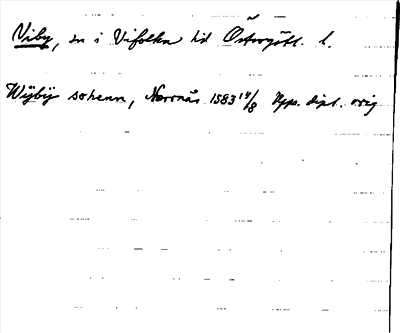 Viby, sn i Vifolka hd Östergötl. l.
Wijbij sokenn, Norrnäs 1583 14/8 Upps. dipl. orig